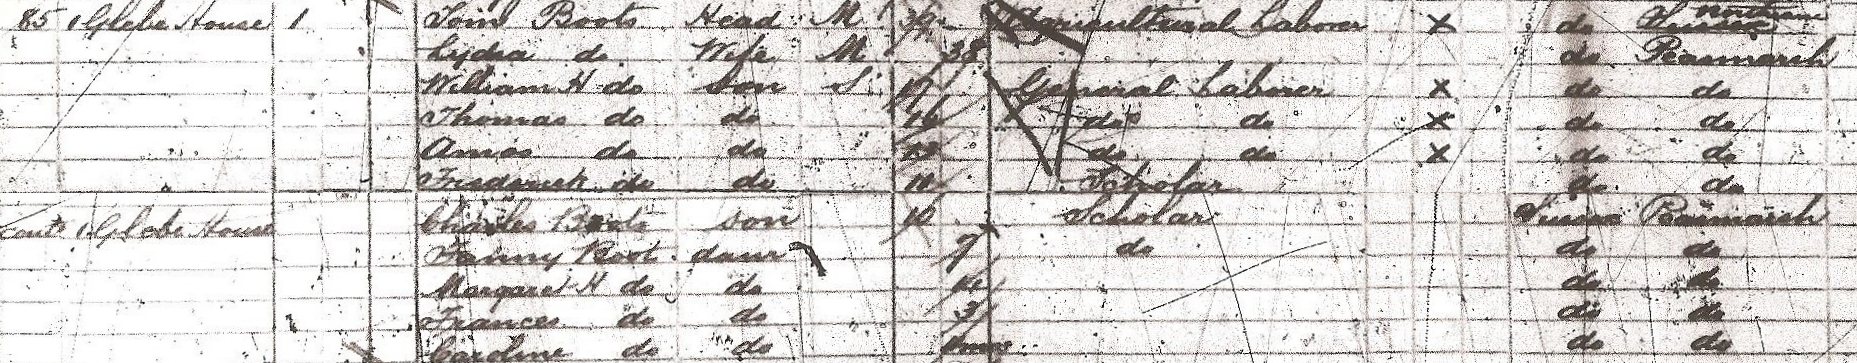 85 1 Glebe House 1 Tom Boots Head M 39 Agricultural Laborer x do
Lydia do Wife M 38 do Peasmarsh
William H do son S 19 General Laborer x do do
Thomas do do 16 do do x do do
Amos do do do do x do do
Frederick do do 11 Scholar do do
Cont 1 Glebe House Charles Boots son 10 Scholar Sussex Peasmarsh
Fanny Boot daur 7 do do do
Margaret H do do do do
Frances do do 3 do do
Caroline do do do do